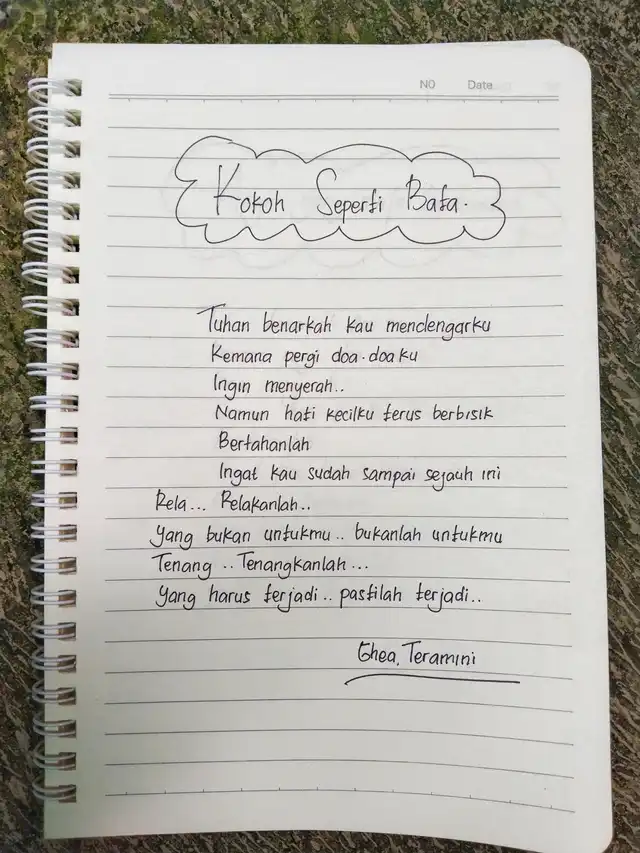 NO Date
Kokoh Seperti Bata.
Tuhan benarkah kau mendengarku
Kemana pergi doa-doaku
Ingin menyerah..
Namun hati kecilku terus berbisik
Bertahanlah
Ingat kau sudah sampai sejauh ini
Rela... Relakanlah..
yang bukan untukmu.. bukanlah untukmu
Tenang.. Tenangkanlah...
yang harus terjadi.. pastilah terjadi..
Ghea, Teramini